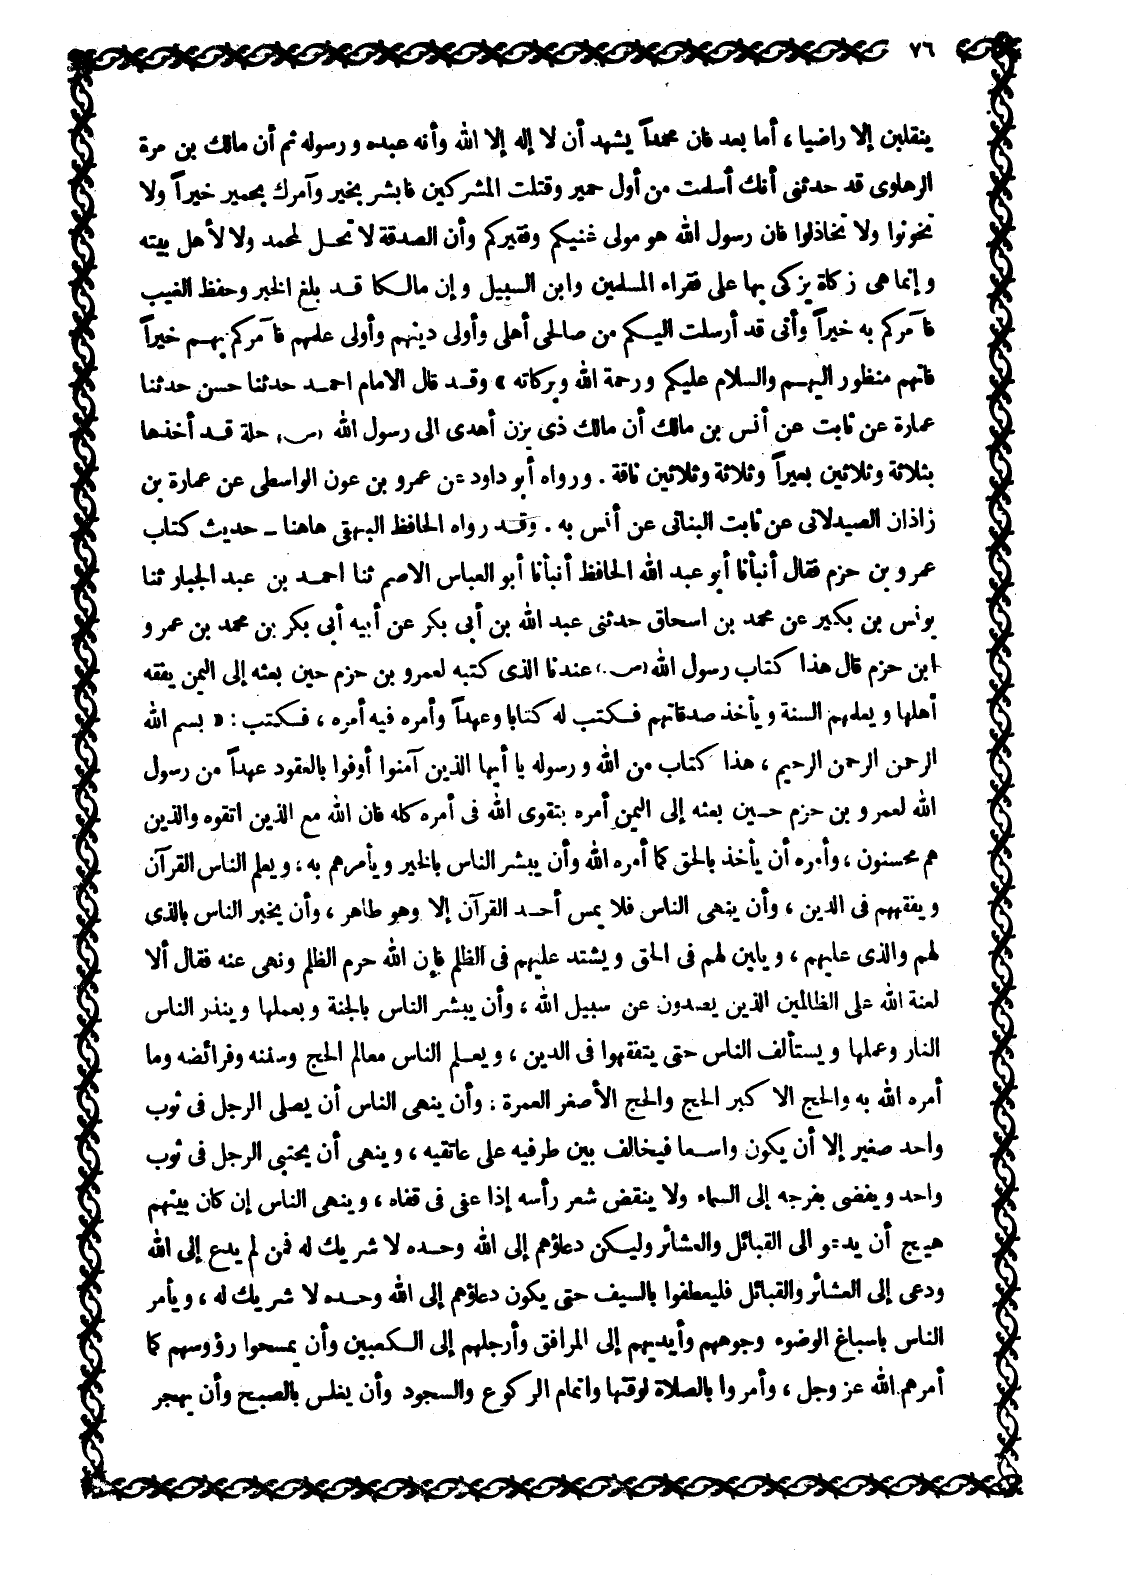 ٧٦
ينقلبن إلا راضيا ، أما بعد فان محمداً يشهد أن لا إله إلا الله وأنه عبده ورسوله ثم أن مالك بن مرة
الرهاوى قد حدثنى أنك أسلمت من أول حمير وقتلت المشركين فابشر بخير وآمرك بحمير خيراً ولا
تخونوا ولا تخاذلوا فان رسول الله هو مولى غنيكم وفقيركم وأن الصدقة لا تحل لمحمد ولا لأهل بيته
وإنما هى زكاة يزكى بها على فقراء المسلمين وابن السبيل وإن مالكا قد بلغ الخبر وحفظ الغيب
فآمركم به خيراً وأنى قد أرسلت اليكم من صالحى أهلى وأولى دينهم وأولى علمهم فآمركم بهم خيراً
فانهم منظور اليهم والسلام عليكم ورحمة الله وبركاته » وقد قال الامام احمد حدثنا حسن حدثنا
عمارة عن ثابت عن أنس بن مالك أن مالك ذى يزن أهدى الى رسول الله (ص) حلة قد أخذها
بثلاثة وثلاثين بعيراً وثلاثة وثلاثين ناقة . ورواه أبو داود عن عمرو بن عون الواسطى عن عمارة بن
زاذان الصيدلانى عن ثابت البنانى عن أنس به . وقد رواه الحافظ البيهقى هاهنا ــ حديث كتاب
عمرو بن حزم فقال أنبأنا أبو عبد الله الحافظ أنبأنا أبو العباس الاصم ثنا احمد بن عبد الجبار ثنا
يونس بن بكير عن محمد بن اسحاق حدثنى عبد الله بن أبى بكر عن أبيه أبى بكر بن محمد بن عمرو
ابن حزم قال هذا كتاب رسول الله (ص) عندنا الذى كتبه لعمرو بن حزم حين بعثه إلى اليمن يفقه
أهلها ويعلمهم السنة ويأخذ صدقاتهم فكتب له كتابا وعهداً وأمره فيه أمره ، فكتب : « بسم الله
الرحمن الرحيم ، هذا كتاب من الله ورسوله يا أيها الذين آمنوا أوفوا بالعقود عهداً من رسول
الله لعمرو بن حزم حين بعثه إلى اليمن أمره بتقوى الله فى أمره كله فان الله مع الذين اتقوه والذين
هم محسنون ، وأمره أن يأخذ بالحق كما أمره الله وأن يبشر الناس بالخير ويأمرهم به ، ويعلم الناس القرآن
ويفقههم فى الدين ، وأن ينهى الناس فلا يمس أحد القرآن إلا وهو طاهر ، وأن يخبر الناس بالذى
لهم والذى عليهم ، ويلين لهم فى الحق ويشتد عليهم فى الظلم فإن الله حرم الظلم ونهى عنه فقال ألا
لعنة الله على الظالمين الذين يصدون عن سبيل الله ، وأن يبشر الناس بالجنة وبعملها وينذر الناس
النار وعملها ويستألف الناس حتى يتفقهوا فى الدين ، ويعلم الناس معالم الحج وسننه وفرائضه وما
أمره الله به والحج الاكبر الحج والحج الأصغر العمرة : وأن ينهى الناس أن يصلى الرجل فى ثوب
واحد صغير إلا أن يكون واسعا فيخالف بين طرفيه على عاتقيه ، وينهى أن يحتبى الرجل فى ثوب
واحد ويفضى بفرجه إلى السماء ولا ينقض شعر رأسه إذا عفى فى قفاه ، وينهى الناس إن كان بينهم
هيج أن يدعو الى القبائل والعشائر وليكن دعاؤهم إلى الله وحده لا شريك له فمن لم يدع إلى الله
ودعى إلى العشائر والقبائل فليعطفوا بالسيف حتى يكون دعاؤهم إلى الله وحده لا شريك له ، ويأمر
الناس باسباغ الوضوء وجوههم وأيديهم إلى المرافق وأرجلهم إلى الكعبين وأن يمسحوا رؤوسهم كما
أمرهم الله عز وجل ، وأمروا بالصلاة لوقتها واتمام الركوع والسجود وأن يغلس بالصبح وأن يهجر